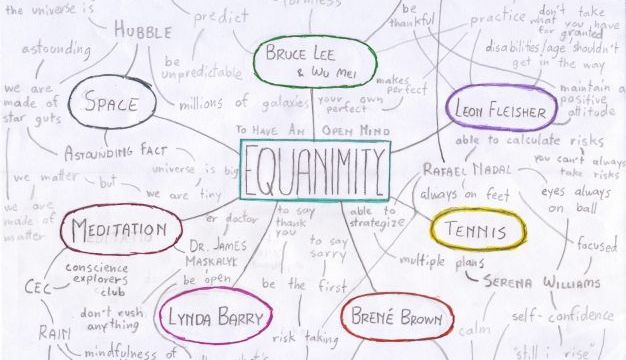 the universe is
HUBBLE
predict
formless
be
thankful
practice
don't take
what you have
for granted
astounding
BRUCE LEE
& WU MEI
disabilities/age shouldn't
get in the way
be
unpredictable
makes
perfect
we are
made of
star guts
SPACE
millions of galaxies
your own
perfect
LEON FLEISHER
maintain a
positive
attitude
TO HAVE AN OPEN MIND
EQUANIMITY
able to
calculate risks
ASTOUNDING FACT
universe is big
you can't always
take risks
we matter
but
we are tiny
RAFAEL NADAL
always on feet
eyes always
on ball
we are
made of
matter
MEDITATION
er doctor
to say
thank
you
able to
strategize
TENNIS
DR. JAMES
MASKALYK
to say
sorry
focused
CEC
conscience
explorers
club
be open
be the first
multiple plans
SERENA WILLIAMS
don't rush
anything
LYNDA BARRY
BRENÉ BROWN
self-confidence
RAIN
risk taking
calm
mindfulness of
"still i rise"